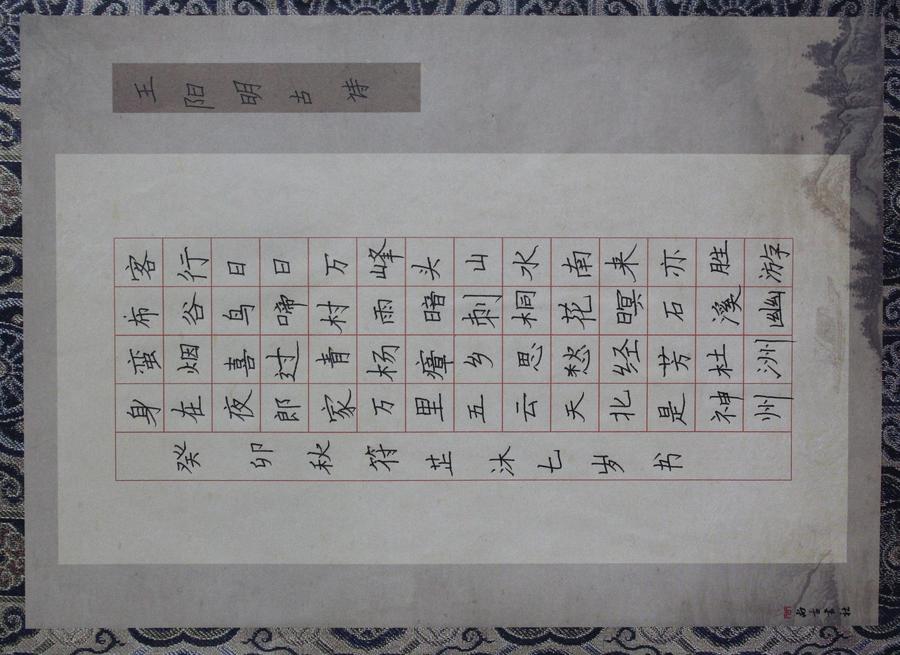 王阳明古诗
客行日日万峰头山水南来亦胜游
布谷鸟啼村雨暗刺桐花暝石溪幽
蛮烟喜过青杨瘴乡思愁经芳杜洲
身在夜郎家万里五云天北是神州
癸卯秋符芷沐七岁书